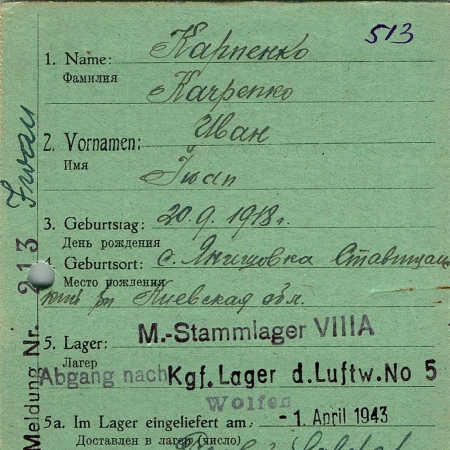 513
Карпенко
1. Name:
Фамилия
Качрепко
Иван
2. Vornamen:
Имя
Iwan
3. Geburtstag: 20.9.1918г.
День рождения
4. Geburtsort: с. Янишовка Ставищан
Место рождения
ский рн Киевская обл.
5. Lager: M.-Stammlager VIIIA
Лагерь
Abgang nach Kgf. Lager d. Luftw. No 5
Wolfen
5a. Im Lager eingeliefert am - 1. April 1943
Доставлен в лагерь (число)
Iwan
Meldung Nr. 213